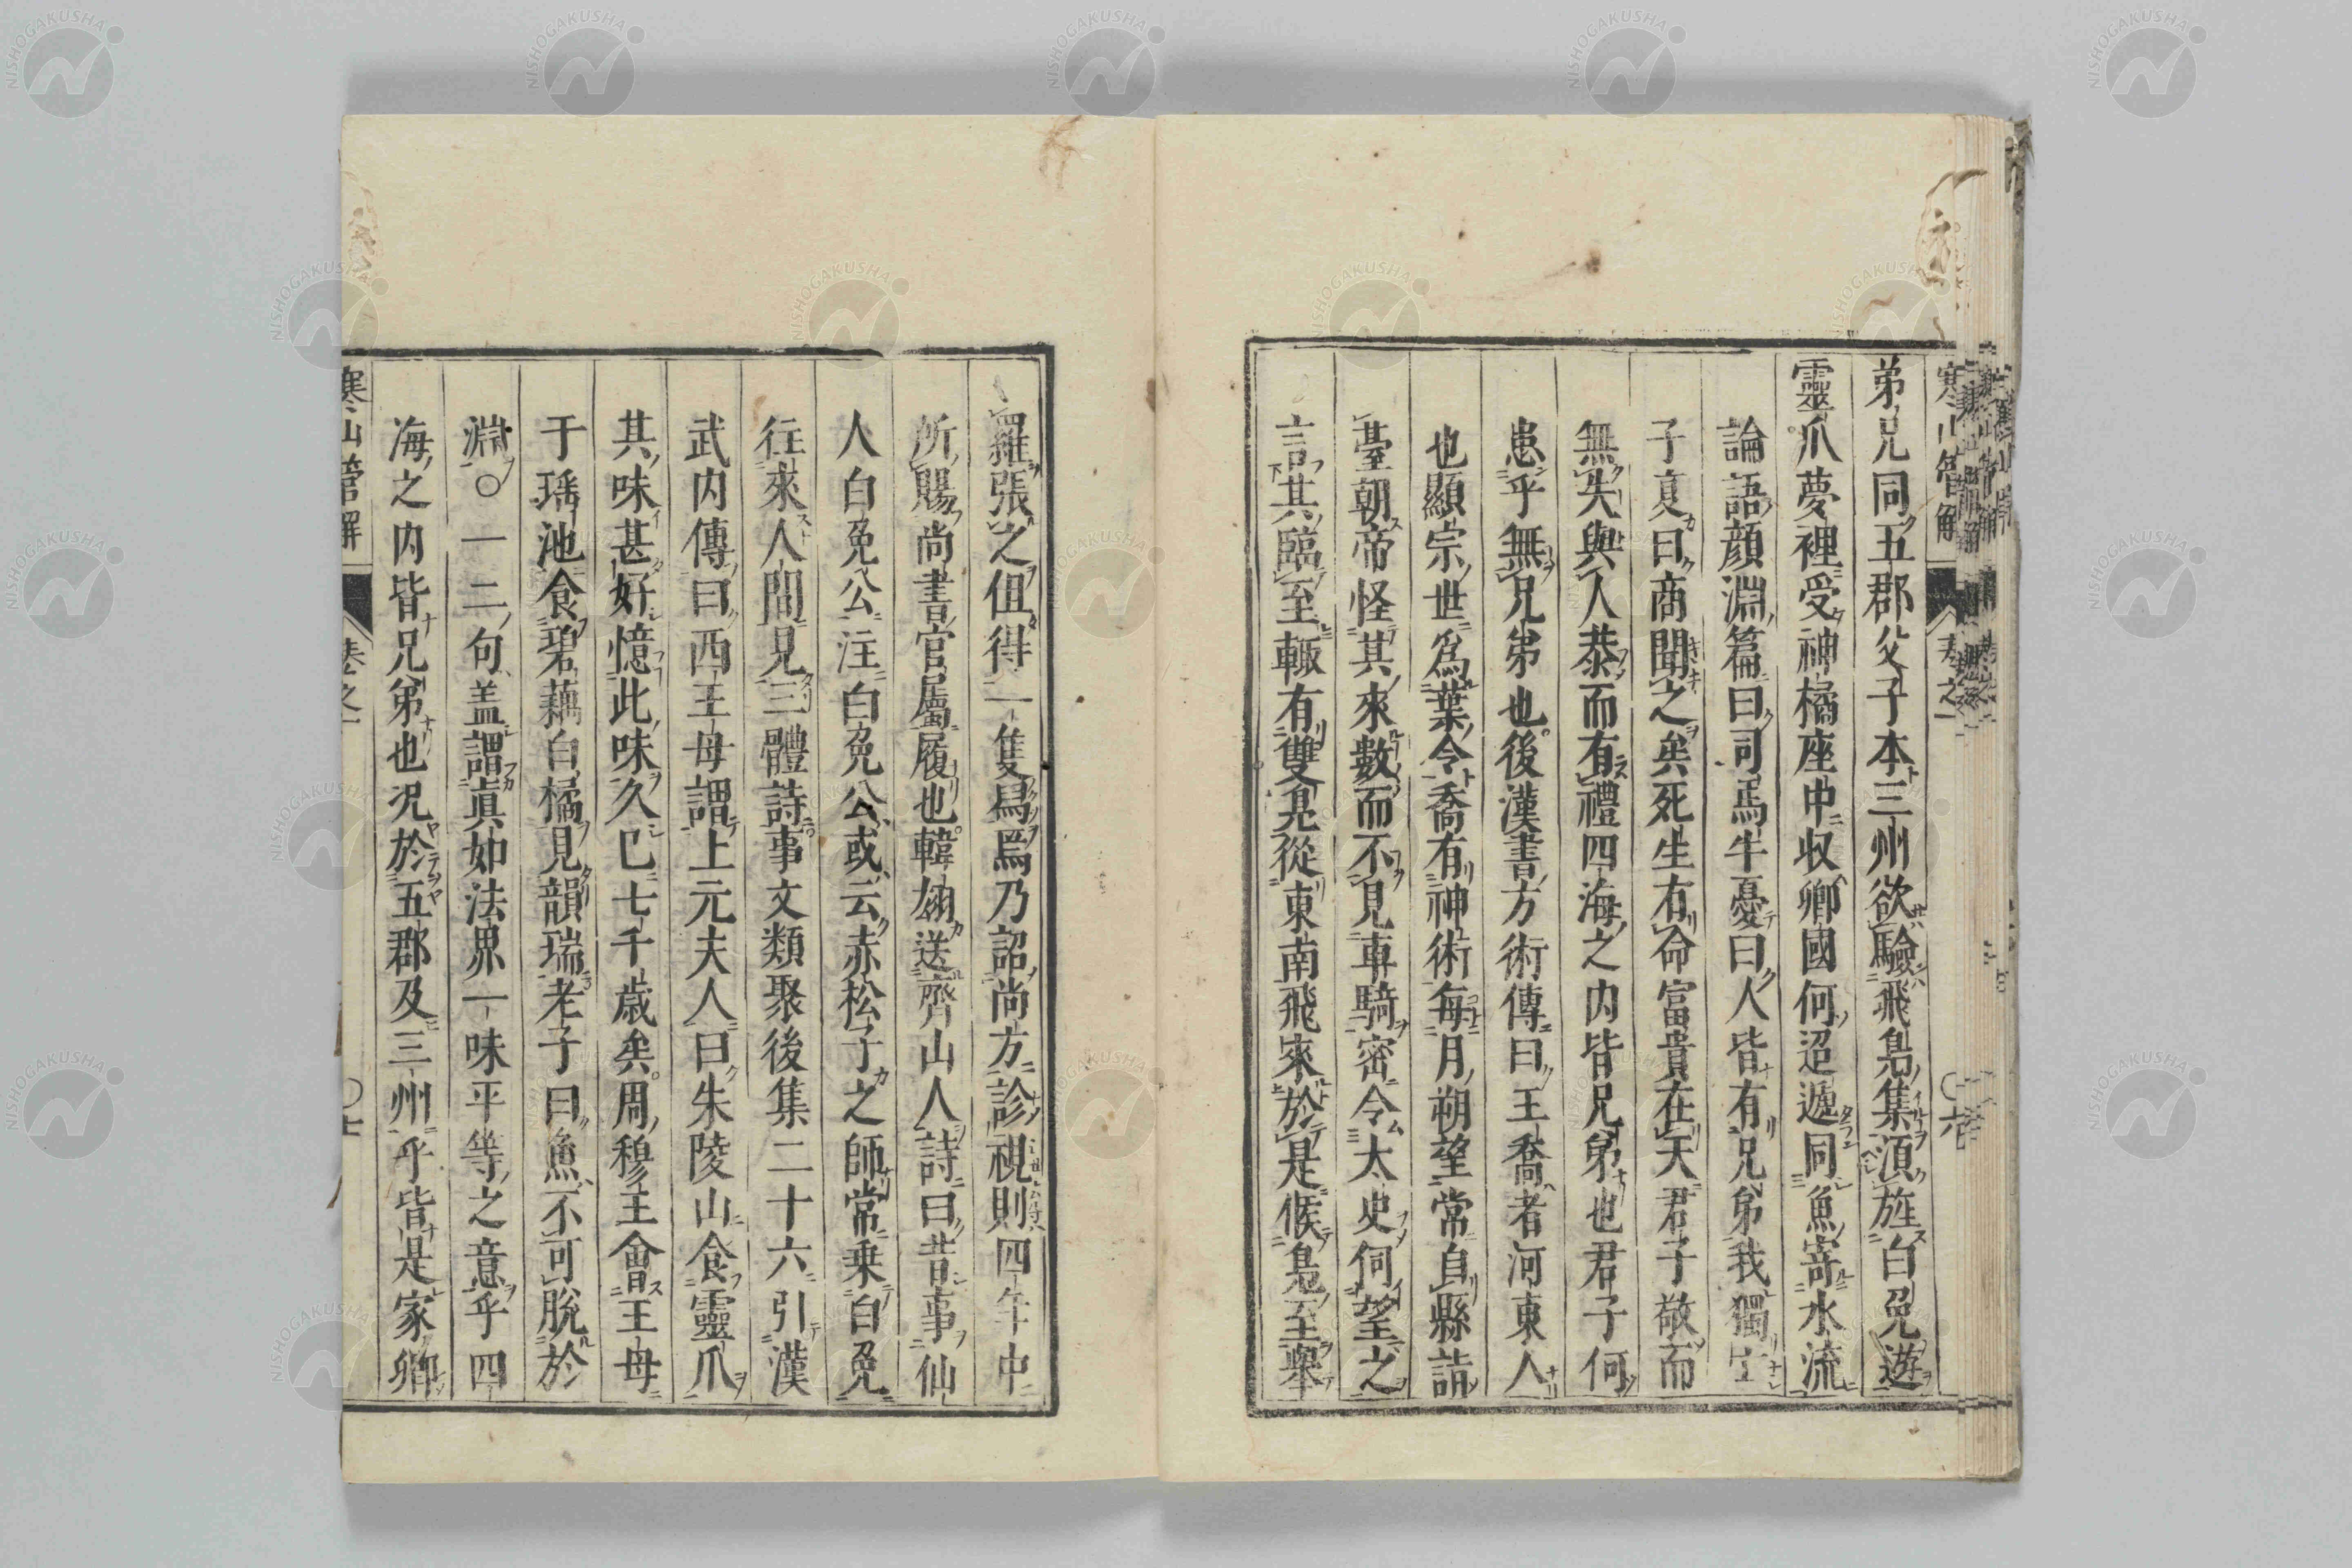 弟兄同五郡父子本三州欲驗飛鳧集須旌白兔遊
靈爪夢裡受神橘座中収鄉國何迢遞同魚寄水流
論語顔淵篇曰司馬牛憂曰人皆有兄弟我獨亡
子夏曰商聞之矣死生有命富貴在天君子敬而
無失與人恭而有禮四海之内皆兄弟也君子何
患乎無兄弟也後漢書方術傳曰王喬者河東人
也顯宗世爲葉令喬有神術每月朔望常自縣詣
臺朝帝怪其來數而不見車騎密令太史伺望之
言其臨至輙有雙鳧從東南飛來於是候鳧至舉
寒山管解 卷之一 〇六
羅張之但得一隻舄焉乃詔尚方診視則四年中
所賜尚書官屬履也韓翃送齊山人詩曰昔事仙
人白兔公注白兔公或云赤松子之師常乗白兔
往來人間見三體詩事文類聚後集二十六引漢
武内傳曰西王母謂上元夫人曰朱陵山食靈爪
其味甚好憶此味久巳七千歳矣周穆王會王母
于瑤池食碧藕白橘見韻瑞老子曰魚不可脫於
淵〇一二句盖謂眞如法界一味平等之意乎四
海之内皆兄弟也况於五郡及三州乎皆是家鄉
寒山管解 卷之一 〇七
NISHOGAKUSHA